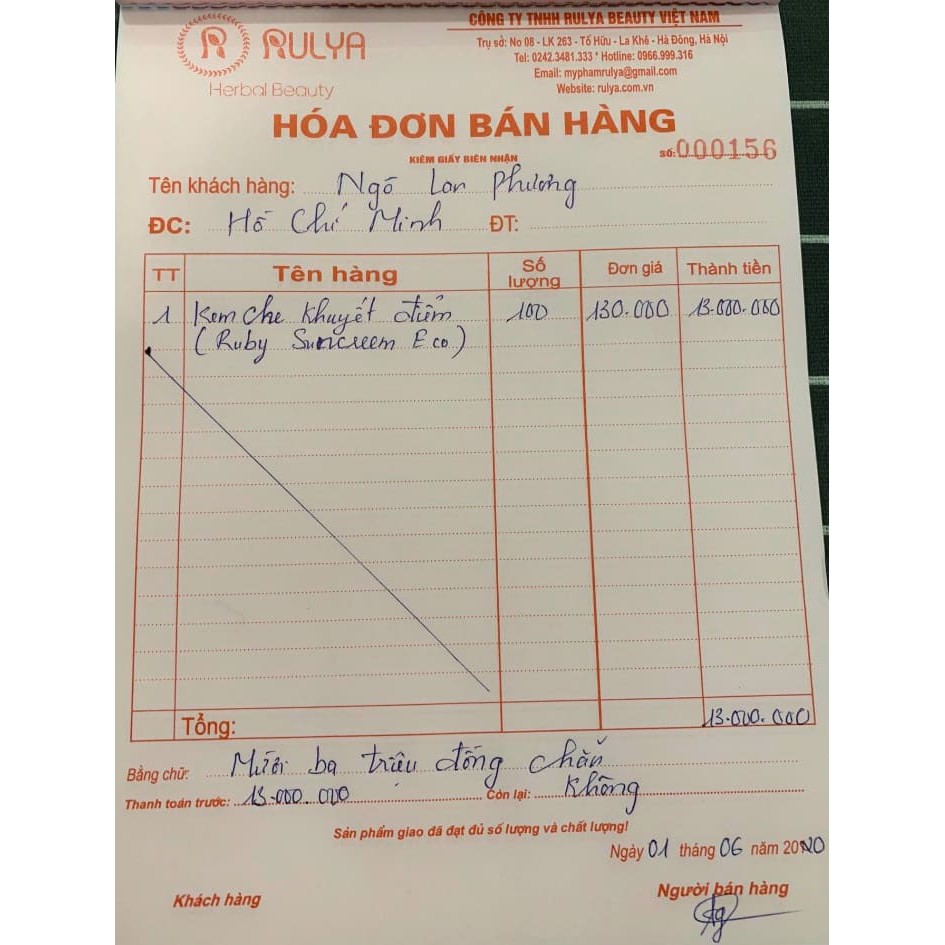 RULYA
Herbal Beauty
CÔNG TY TNHH RULYA BEAUTY VIỆT NAM
Trụ sở: No 08 - LK 263 - Tố Hữu - La Khê - Hà Đông, Hà Nội
Tel: 0242.3481.333 * Hotline: 0966.999.316
Email: myphamrulya@gmail.com
Website: rulya.com.vn
HÓA ĐƠN BÁN HÀNG
KIÊM GIẤY BIÊN NHẬN
Số: 000156
Tên khách hàng: Ngô Lan Phương
ĐC: Hồ Chí Minh ĐT:
TT Tên hàng Số lượng Đơn giá Thành tiền
1 Kem che khuyết điểm 100 130.000 13.000.000
(Ruby Suncreem Eco)
Tổng: 13.000.000
Bằng chữ: Mười ba triệu đồng chẵn
Thanh toán trước: 13.000.000 Còn lại: Không
Sản phẩm giao đã đạt đủ số lượng và chất lượng!
Ngày 01 tháng 06 năm 2020
Khách hàng Người bán hàng